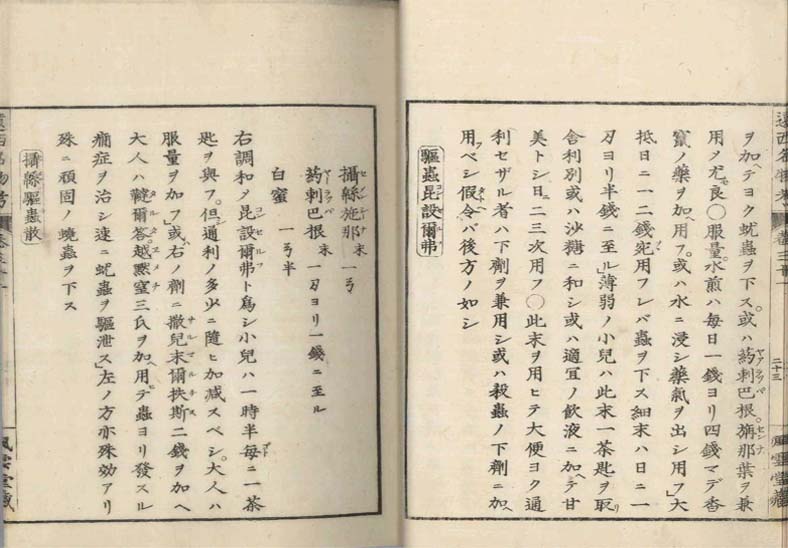 ヲ加ヘテヨク蚘蟲ヲ下ス。或ハ葯剌巴根。旃那葉ヲ兼
用メ尤良〇服量。水煎ハ毎日一錢ヨリ四錢マデ香
竄ノ藥ヲ加ヘ用フ。或ハ水ニ浸シ藥氣ヲ出シ用フ」大
抵日ニ一二錢宛用フレバ蟲ヲ下ス細末ハ日ニ一
刃ヨリ半錢ニ至ル」薄弱ノ小兒ハ此末一茶匙ヲ取リ
舎利別或ハ沙糖ニ和シ或ハ適宜ノ飲液ニ加ヘテ甘
美トシ日ニ二三次用フ〇此末ヲ用ヒテ大便ヨク通
利セザル者ハ下劑ヲ兼用シ或ハ殺蟲ノ下劑ニ加ヘ
用フベシ假令バ後方ノ如シ
驅蟲昆設爾弗
二十三
攝緜施那末 一弓
葯剌巴根末 一刃ヨリ一錢ニ至ル
白蜜 一弓半
右調和メ昆設爾弗ト爲シ小兒ハ一時半毎ニ一茶
匙ヲ與フ。但シ通利ノ多少ニ隨ヒ加減スベシ。大人ハ
服量ヲ加フ或ハ右ノ劑ニ撒兒末爾挾斯二錢ヲ加ヘ
大人ハ韃爾答。越黙窒三氏ヲ加ヘ用ヒテ蟲ヨリ發スル
痼症ヲ治シ速ニ蚘蟲ヲ驅泄ス」左ノ方亦殊効アリ
殊ニ頑固ノ蟯蟲ヲ下ス
攝緜驅蟲散